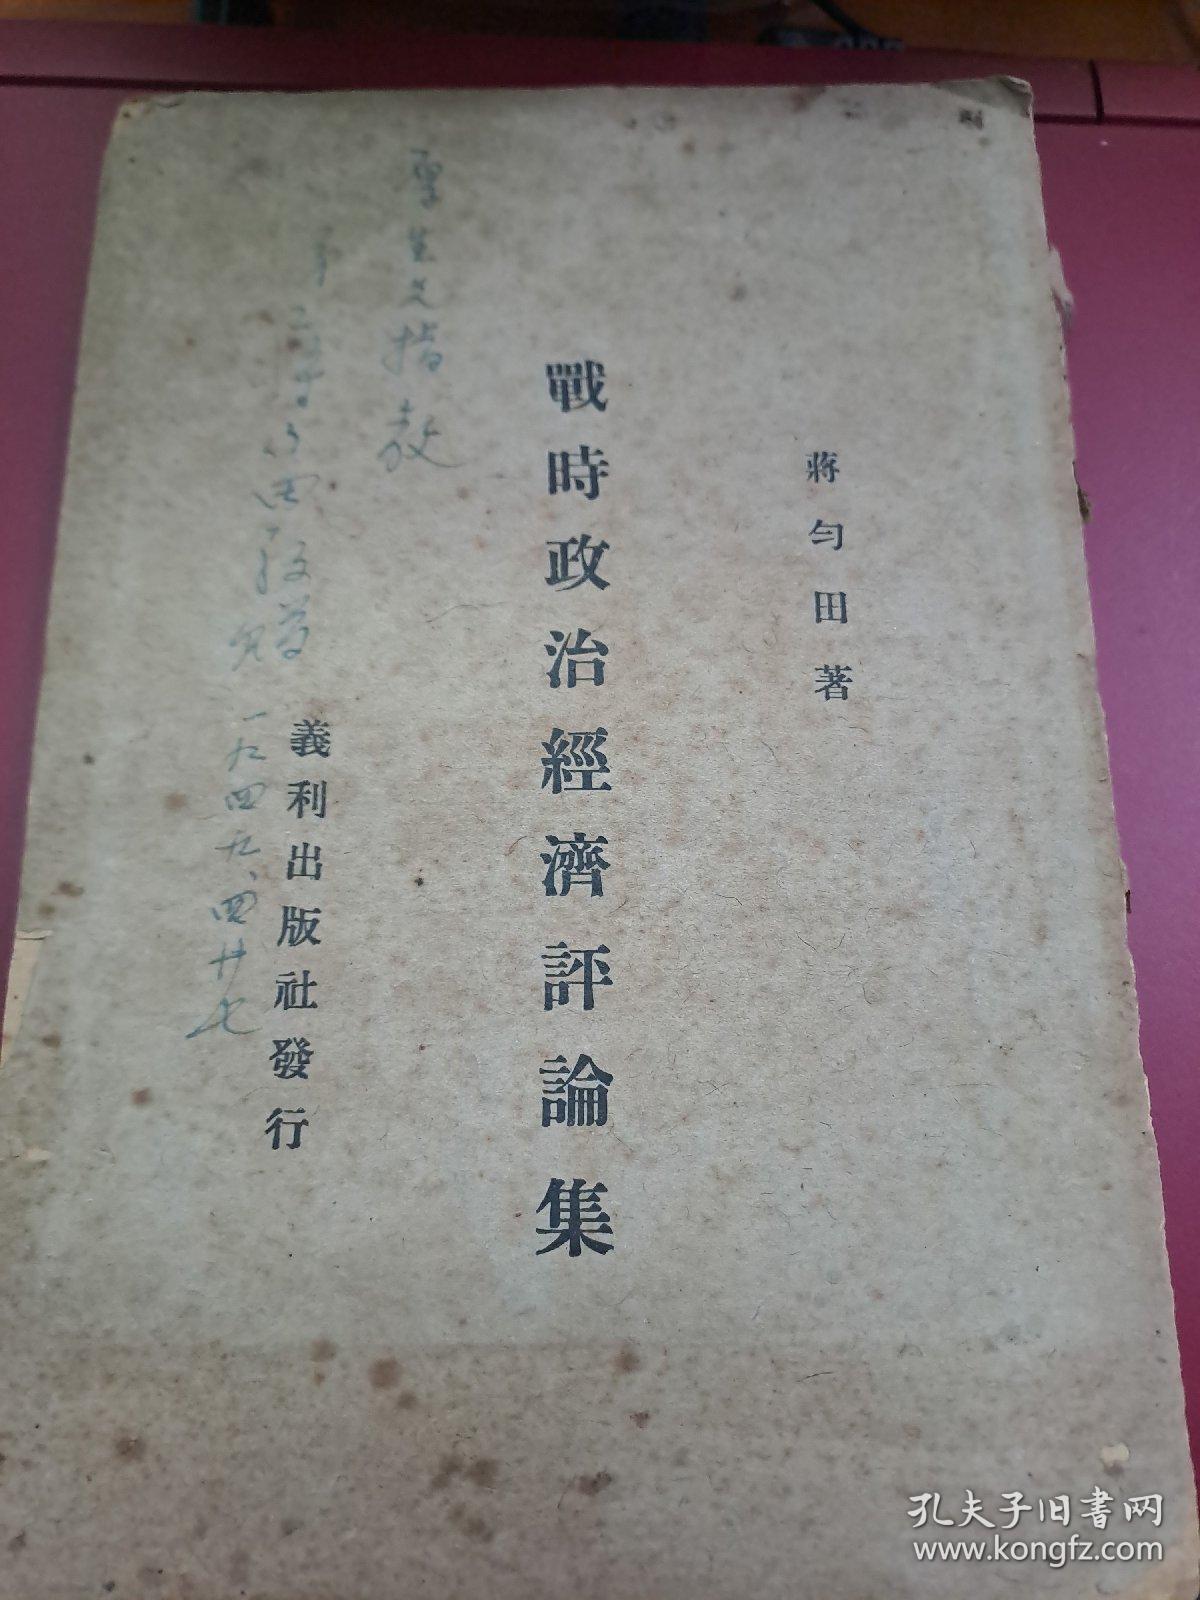 蔣勻田著
戰時政治經濟評論集
義利出版社發行
指教
田敬贈
一九四九、四廿七
孔夫子旧书网
www.kongfz.com